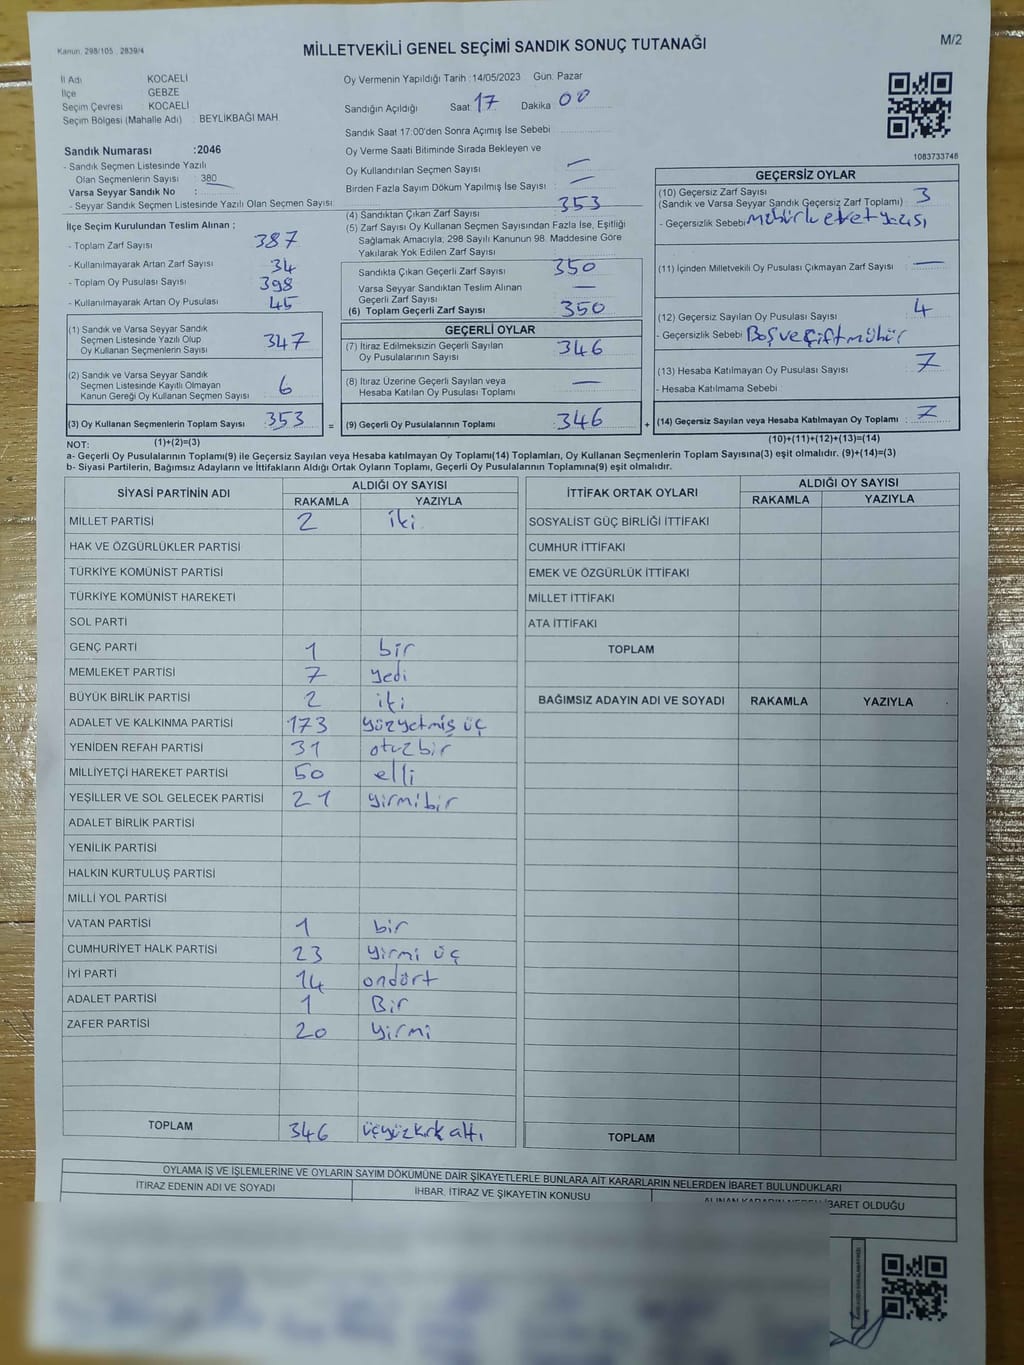 Kanun. 298/105 , 2839/4
MİLLETVEKİLİ GENEL SEÇİMİ SANDIK SONUÇ TUTANAĞI
M/2
İl Adı KOCAELİ
İlçe GEBZE
Seçim Çevresi KOCAELİ
Seçim Bölgesi (Mahalle Adı) : BEYLİKBAĞI MAH.
Sandık Numarası :2046
- Sandık Seçmen Listesinde Yazılı
Olan Seçmenlerin Sayısı : 380
Varsa Seyyar Sandık No :
- Seyyar Sandık Seçmen Listesinde Yazılı Olan Seçmen Sayısı
Oy Vermenin Yapıldığı Tarih :14/05/2023 Gün: Pazar
Sandığın Açıldığı Saat: 17 Dakika 00
Sandık Saat 17:00'den Sonra Açımış İse Sebebi
Oy Verme Saati Bitiminde Sırada Bekleyen ve
Oy Kullandırılan Seçmen Sayısı : —
Birden Fazla Sayım Döküm Yapılmış İse Sayısı : —
1083733748
İlçe Seçim Kurulundan Teslim Alınan ;
- Toplam Zarf Sayısı 387
- Kullanılmayarak Artan Zarf Sayısı 34
- Toplam Oy Pusulası Sayısı 398
- Kullanılmayarak Artan Oy Pusulası 45
(1) Sandık ve Varsa Seyyar Sandık
Seçmen Listesinde Yazılı Olup
Oy Kullanan Seçmenlerin Sayısı 347
(2) Sandık ve Varsa Seyyar Sandık
Seçmen Listesinde Kayıtlı Olmayan
Kanun Gereği Oy Kullanan Seçmen Sayısı 6
(3) Oy Kullanan Seçmenlerin Toplam Sayısı : 353 =
(4) Sandıktan Çıkan Zarf Sayısı : 353
(5) Zarf Sayısı Oy Kullanan Seçmen Sayısından Fazla İse, Eşitliği
Sağlamak Amacıyla; 298 Sayılı Kanunun 98. Maddesine Göre
Yakılarak Yok Edilen Zarf Sayısı :
Sandıkta Çıkan Geçerli Zarf Sayısı : 350
Varsa Seyyar Sandıktan Teslim Alınan
Geçerli Zarf Sayısı —
(6) Toplam Geçerli Zarf Sayısı : 350
GEÇERLİ OYLAR
(7) İtiraz Edilmeksizin Geçerli Sayılan
Oy Pusulalarının Sayısı : 346
(8) İtiraz Üzerine Geçerli Sayılan veya
Hesaba Katılan Oy Pusulası Toplamı : —
(9) Geçerli Oy Pusulalarının Toplamı : 346 +
GEÇERSİZ OYLAR
(10) Geçersiz Zarf Sayısı
(Sandık ve Varsa Seyyar Sandık Geçersiz Zarf Toplamı) : 3
- Geçersizlik Sebebi Mühürlü evet yazısı
(11) İçinden Milletvekili Oy Pusulası Çıkmayan Zarf Sayısı : —
(12) Geçersiz Sayılan Oy Pusulası Sayısı : 4
- Geçersizlik Sebebi Boş ve Çift mühür
(13) Hesaba Katılmayan Oy Pusulası Sayısı : 7
- Hesaba Katılmama Sebebi :
(14) Geçersiz Sayılan veya Hesaba Katılmayan Oy Toplamı : 7
NOT: (1)+(2)=(3) (10)+(11)+(12)+(13)=(14)
a- Geçerli Oy Pusulalarının Toplamı(9) ile Geçersiz Sayılan veya Hesaba katılmayan Oy Toplamı(14) Toplamları, Oy Kullanan Seçmenlerin Toplam Sayısına(3) eşit olmalıdır. (9)+(14)=(3)
b- Siyasi Partilerin, Bağımsız Adayların ve İttifakların Aldığı Ortak Oyların Toplamı, Geçerli Oy Pusulalarının Toplamına(9) eşit olmalıdır.
SİYASİ PARTİNİN ADI ALDIĞI OY SAYISI
RAKAMLA YAZIYLA
MİLLET PARTİSİ 2 iki
HAK VE ÖZGÜRLÜKLER PARTİSİ
TÜRKİYE KOMÜNİST PARTİSİ
TÜRKİYE KOMÜNİST HAREKETİ
SOL PARTİ
GENÇ PARTİ 1 bir
MEMLEKET PARTİSİ 7 yedi
BÜYÜK BİRLİK PARTİSİ 2 iki
ADALET VE KALKINMA PARTİSİ 173 yüzyetmiş üç
YENİDEN REFAH PARTİSİ 31 otuzbir
MİLLİYETÇİ HAREKET PARTİSİ 50 elli
YEŞİLLER VE SOL GELECEK PARTİSİ 21 yirmibir
ADALET BİRLİK PARTİSİ
YENİLİK PARTİSİ
HALKIN KURTULUŞ PARTİSİ
MİLLİ YOL PARTİSİ
VATAN PARTİSİ 1 bir
CUMHURİYET HALK PARTİSİ 23 yirmi üç
İYİ PARTİ 14 ondört
ADALET PARTİSİ 1 Bir
ZAFER PARTİSİ 20 yirmi
TOPLAM 346 üçyüzkırkaltı
İTTİFAK ORTAK OYLARI ALDIĞI OY SAYISI
RAKAMLA YAZIYLA
SOSYALİST GÜÇ BİRLİĞİ İTTİFAKI
CUMHUR İTTİFAKI
EMEK VE ÖZGÜRLÜK İTTİFAKI
MİLLET İTTİFAKI
ATA İTTİFAKI
TOPLAM
BAĞIMSIZ ADAYIN ADI VE SOYADI RAKAMLA YAZIYLA
TOPLAM
OYLAMA İŞ VE İŞLEMLERİNE VE OYLARIN SAYIM DÖKÜMÜNE DAİR ŞİKAYETLERLE BUNLARA AİT KARARLARIN NELERDEN İBARET BULUNDUKLARI
İTİRAZ EDENİN ADI VE SOYADI İHBAR, İTİRAZ VE ŞİKAYETİN KONUSU ALINAN KARARIN NEDEN İBARET OLDUĞU